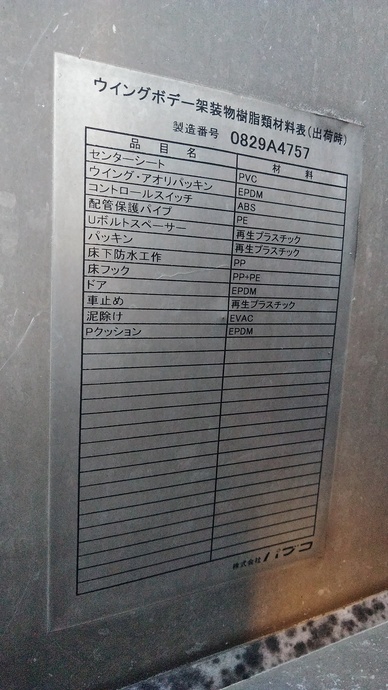 ウイングボデー架装物樹脂類材料表(出荷時)
製造番号 0829A4757
品目名 材料
センターシート PVC
ウイング・アオリパッキン EPDM
コントロールスイッチ ABS
配管保護パイプ PE
Uボルトスペーサー 再生プラスチック
パッキン 再生プラスチック
床下防水工作 PP
床フック PP+PE
ドア EPDM
車止め 再生プラスチック
泥除け EVAC
Pクッション EPDM
株式会社 パブコ